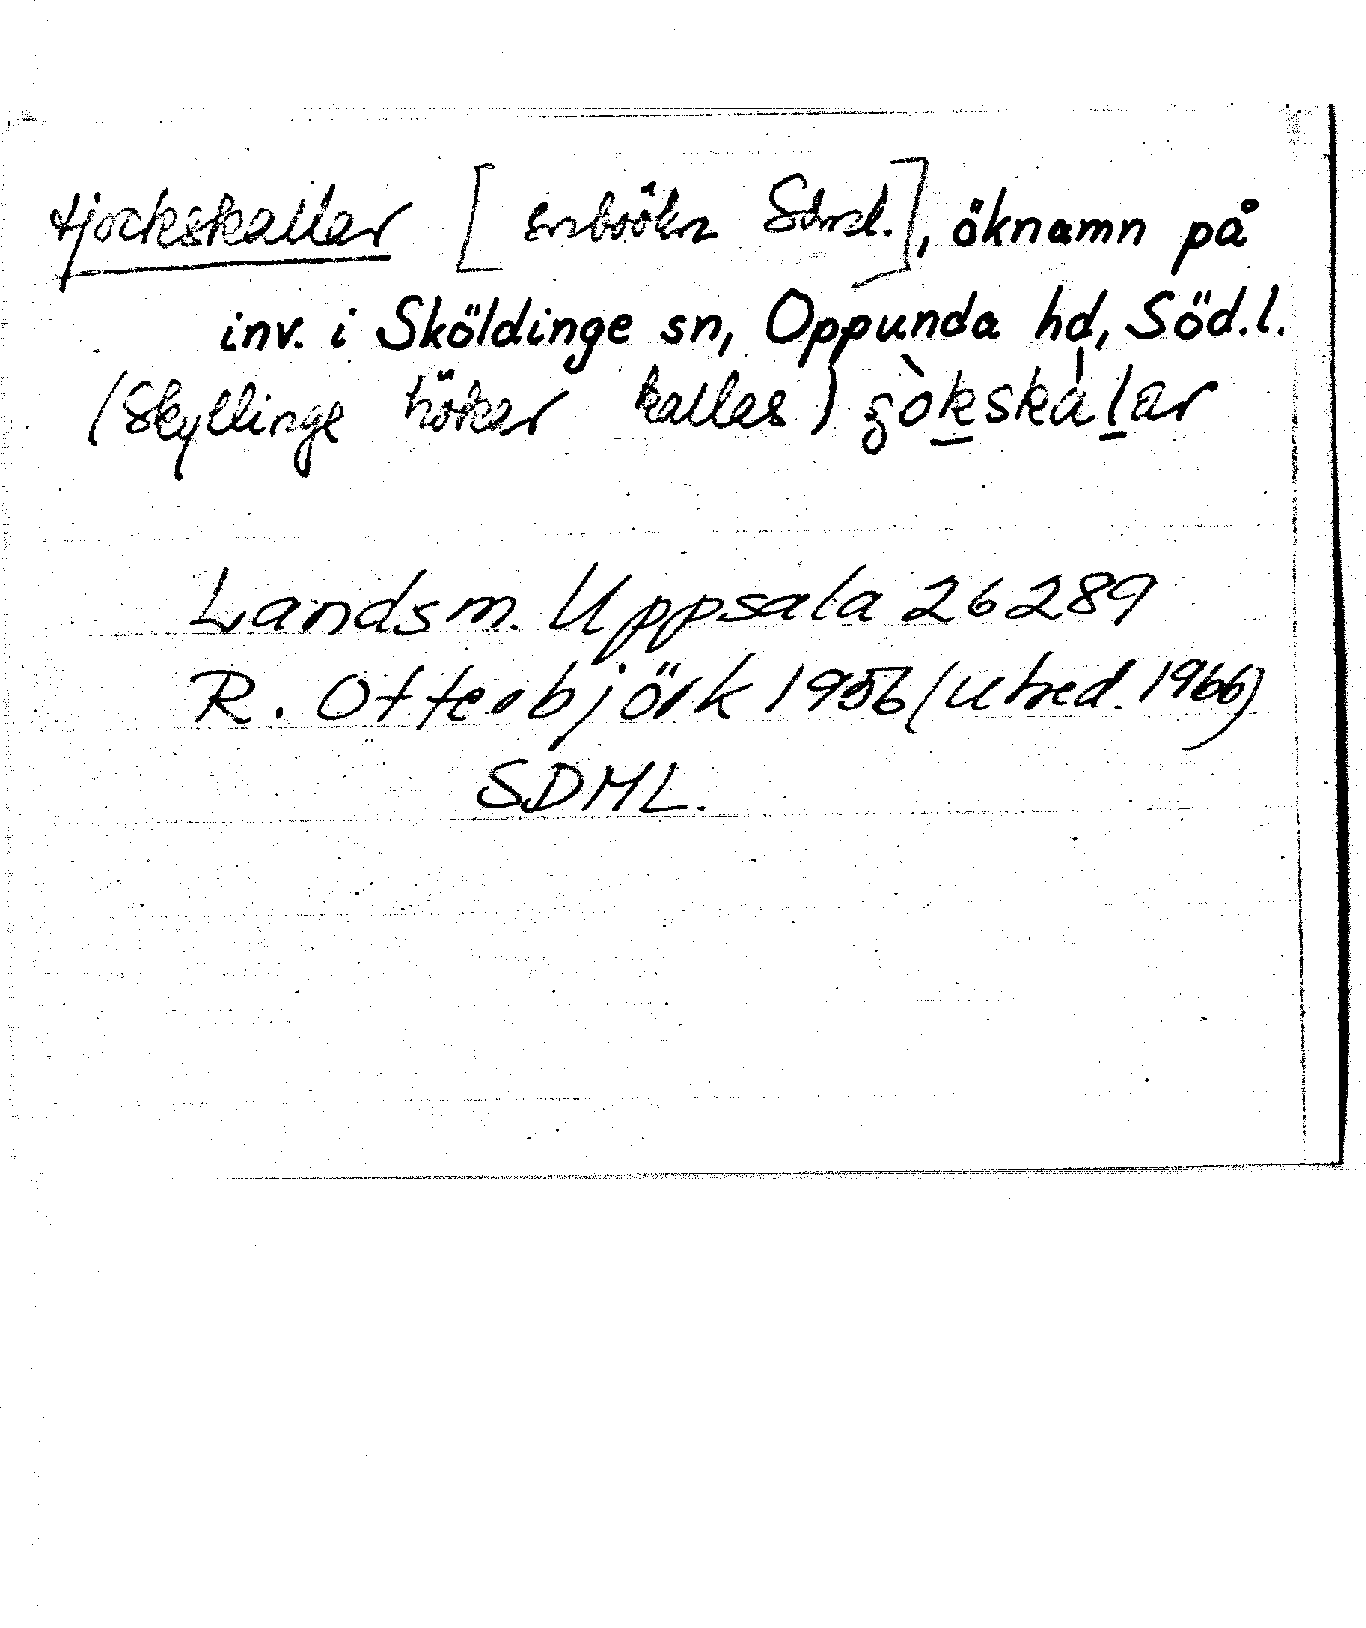 tjockskallar [ snbsökn Sdml.], öknamn på
inv. i Sköldinge sn, Oppunda hd, Söd.l.
(Skyllinge hökar kallas) ʒòkskàlar
Landsm. Uppsala 26289
R. Otterbjörk 1956 (utred. 1966)
SDML.